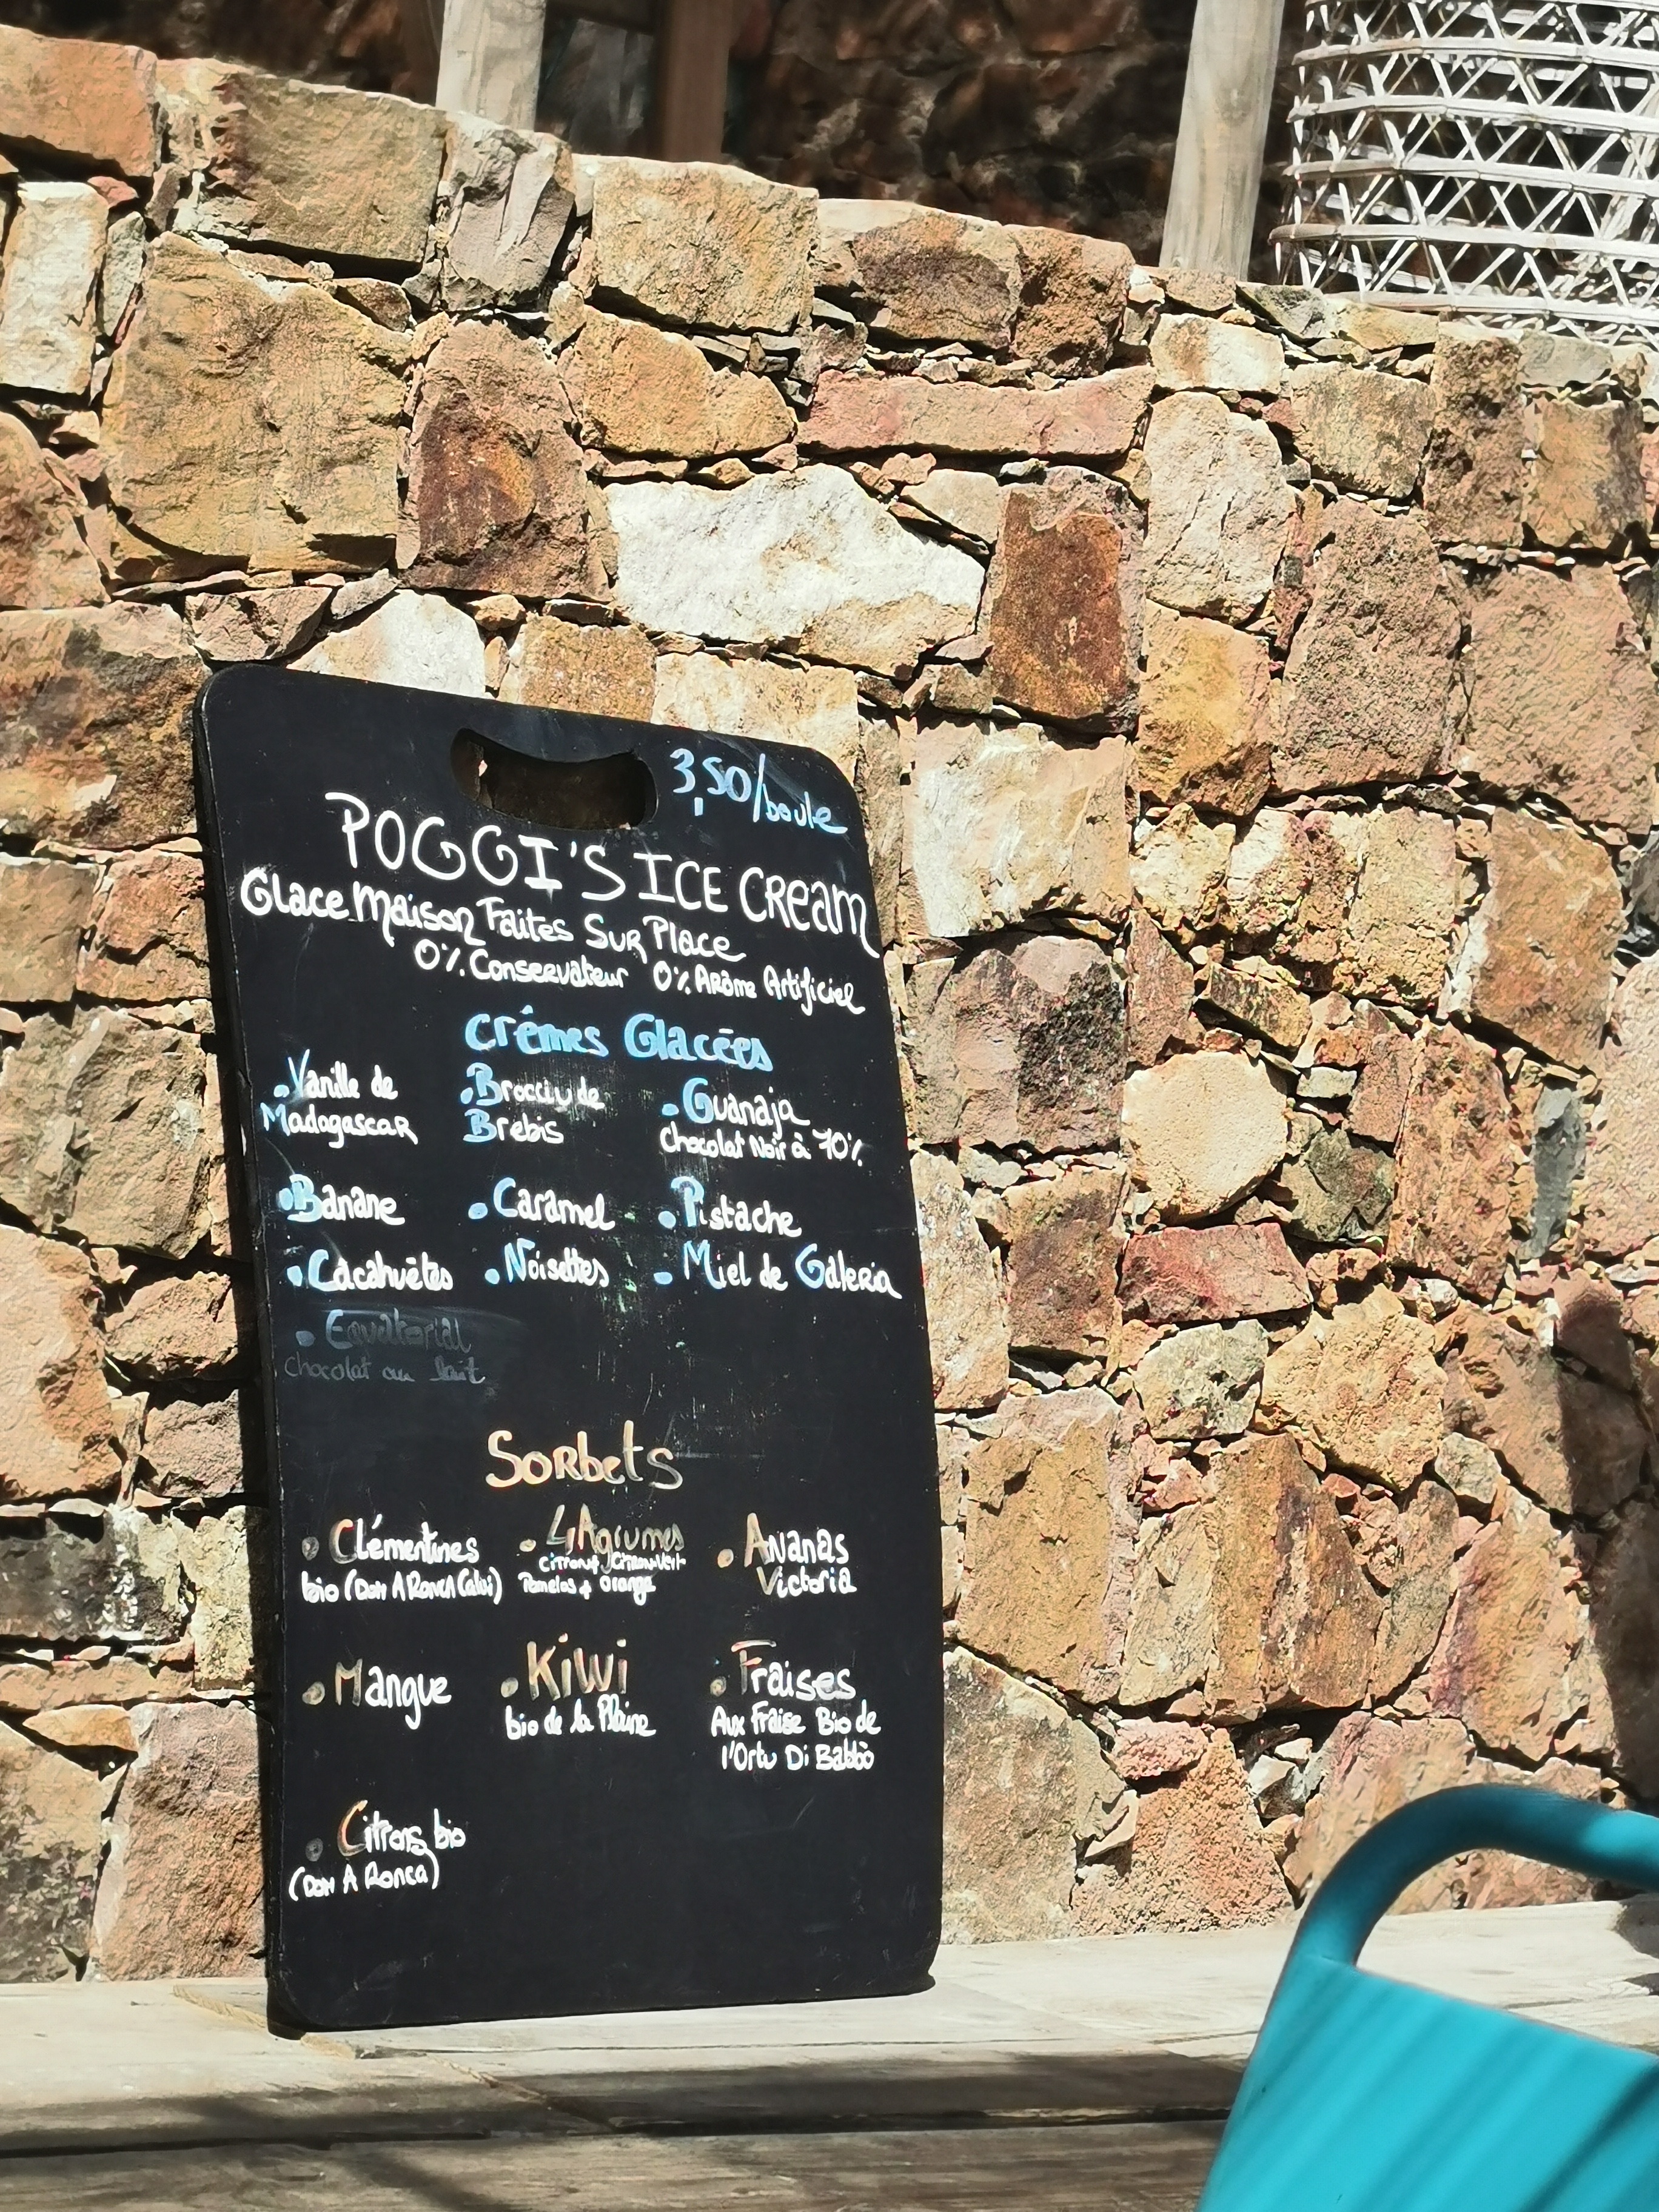 3,50/boule
POGGI'S ICE CREAM
Glace Maison Faites Sur Place
0% Conservateur 0% Arôme Artificiel
Crêmes Glacées
. Vanille de
Madagascar
. Brocciu de
Brebis
. Guanaja
Chocolat Noir à 70%
. Banane
. Caramel
. Pistache
. Cacahuètes
. Noisettes
. Miel de Galeria
. Equatorial
chocolat au lait
Sorbets
. Clémentines
bio (Dom A Ronca Calvi)
. 4 Agrumes
Citron, Citron Vert
Pomelos, Orange
. Ananas
Victoria
. Mangue
. Kiwi
bio de la Plaine
. Fraises
Aux Fraise Bio de
l'Ortu Di Babbò
. Citrons bio
(Dom A Ronca)